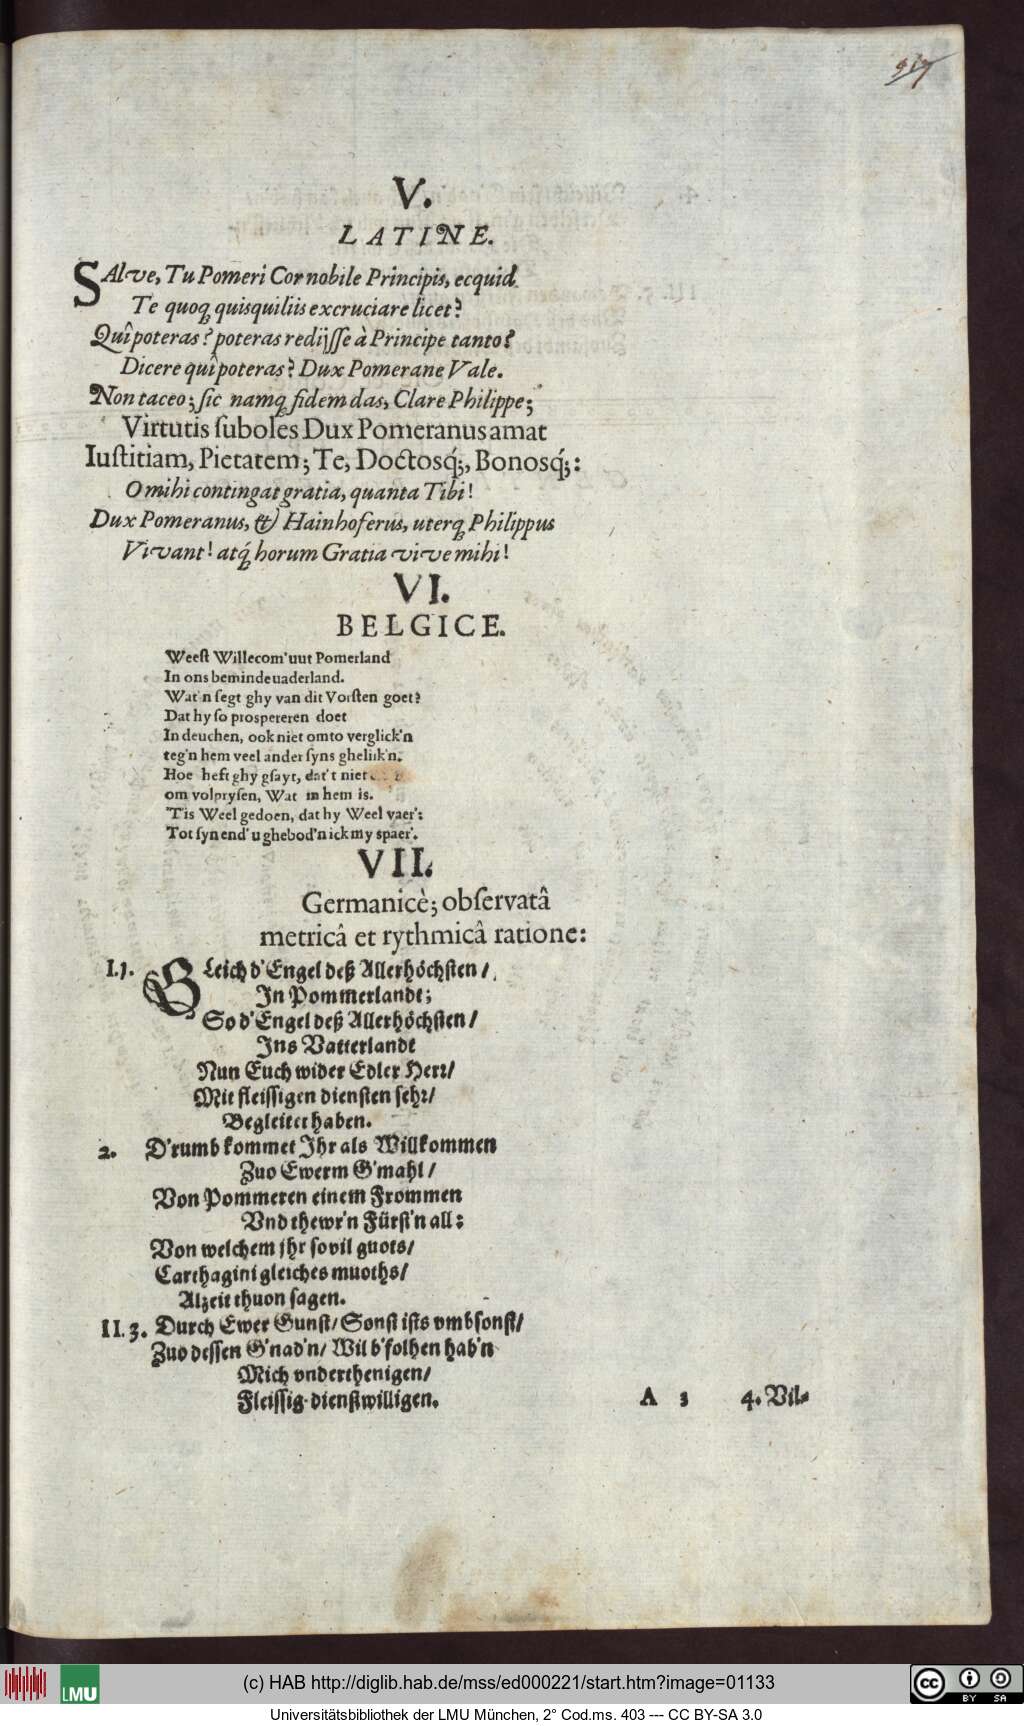 V.
LATINE.
SAlve, Tu Pomeri Cor nobile Principis, ecquid
Te quoq́ quisquiliis excruciare licet?
Quî poteras? poteras redijſſe à Principe tanto?
Dicere quî poteras? Dux Pomerane Vale.
Non taceo; ſic namq́ fidem das, Clare Philippe;
Virtutis ſuboles Dux Pomeranus amat
Iuſtitiam, Pietatem; Te, Doctosq́;, Bonosq́;:
O mihi contingat gratia, quanta Tibi!
Dux Pomeranus, & Hainhoferus, uterq́ Philippus
Vivant! atq́ horum Gratia vive mihi!
VI.
BELGICE.
Weeſt Willecom' uut Pomerland
In ons beminde uaderland.
Wat'n ſegt ghy van dit Vorſten goet?
Dat hy ſo prospereren doet
In deuchen, ook niet om to verglick'n
teg'n hem veel ander ſyns gheliik'n.
Hoe heft ghy gſayt, dat't niet
om volpryſen, Wat in hem is.
'Tis Weel gedoen, dat hy Weel vaer':
Tot ſyn end' u ghebod'n ick my spaer'.
VII.
Germanicè; obſervatâ
metricâ et rythmicâ ratione:
I.1. Gleich d'Engel deß Allerhöchſten /
In Pommerlandt;
So d'Engel deß Allerhöchſten /
Ins Vatterlandt
Nun Euch wider Edler Herr /
Mit fleiſſigen dienſten ſehr /
Begleitet haben.
2. D'rumb kommet Ihr als Willkommen
Zuo Ewerm G'mahl /
Von Pommeren einem Frommen
Vnd thewr'n Fürſt'n all:
Von welchem jhr ſovil guots /
Carthagini gleiches muoths /
Alzeit thuon ſagen.
II.3. Durch Ewer Gunſt / Sonſt iſts vmbſonſt /
Zuo deſſen G'nad'n / Wil b'folhen hab'n
Mich vnderthenigen /
Fleiſſig-dienſtwilligen.
A 3 4. Vil-
(c) HAB http://diglib.hab.de/mss/ed000221/start.htm?image=01133
Universitätsbibliothek der LMU München, 2° Cod.ms. 403 --- CC BY-SA 3.0
LMU
cc BY SA